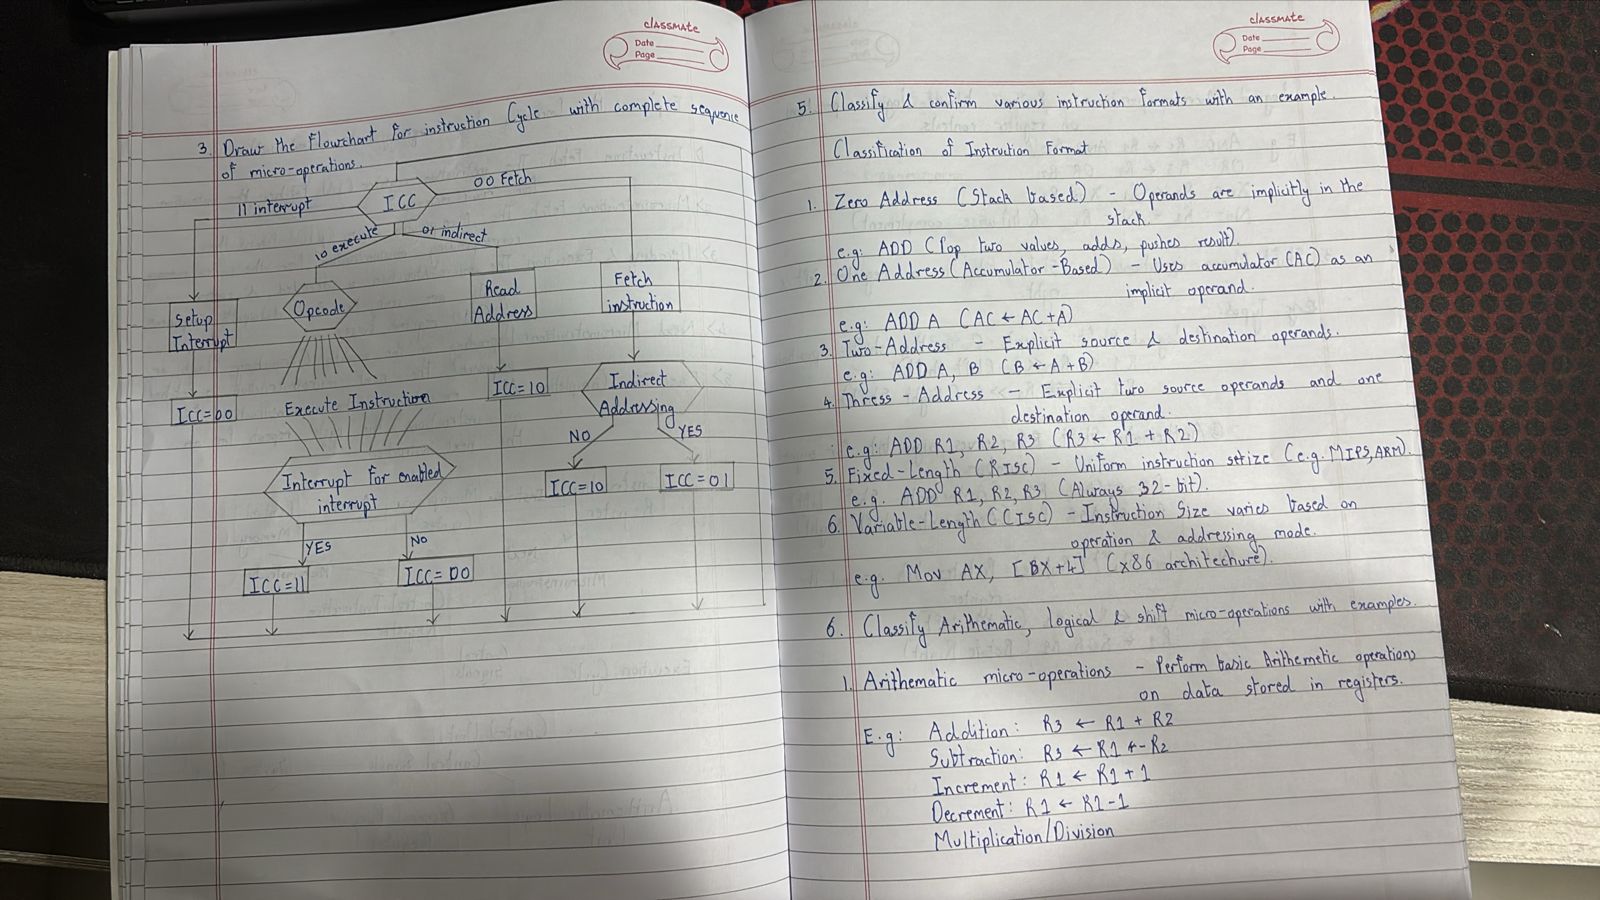 classmate
Date
Page
3. Draw the Flowchart for instruction Cycle with complete sequence
of micro-operations.
ICC
00 Fetch
11 interrupt
10 execute
01 indirect
Setup
Interrupt
Opcode
Read
Address
Fetch
instruction
ICC=00
Execute Instruction
ICC=10
Indirect
Addressing
NO
YES
Interrupt for enabled
interrupt
ICC=10
ICC=01
YES
NO
ICC=11
ICC=00
classmate
Date
Page
5. Classify & confirm various instruction formats with an example.
Classification of Instruction Format
1. Zero Address (Stack based) - Operands are implicitly in the
stack.
e.g: ADD (Pop two values, adds, pushes result).
2. One Address (Accumulator-Based) - Uses accumulator (AC) as an
implicit operand.
e.g: ADD A (AC ← AC+A)
3. Two-Address - Explicit source & destination operands.
e.g: ADD A, B (B ← A+B)
4. Thress-Address - Explicit two source operands and one
destination operand.
e.g: ADD R1, R2, R3 (R3 ← R1 + R2)
5. Fixed-Length (RISC) - Uniform instruction size (e.g. MIPS, ARM).
e.g. ADD R1, R2, R3 (Always 32-bit).
6. Variable-Length (CISC) - Instruction Size varies based on
operation & addressing mode.
e.g. Mov AX, [BX+4] (x86 architechure).
6. Classify Arithematic, logical & shift micro-operations with examples.
1. Arithematic micro-operations - Perform basic Arithemetic operations
on data stored in registers.
E.g: Addition: R3 ← R1 + R2
Subtraction: R3 ← R1 - R2
Increment: R1 ← R1+1
Decrement: R1 ← R1-1
Multiplication/Division